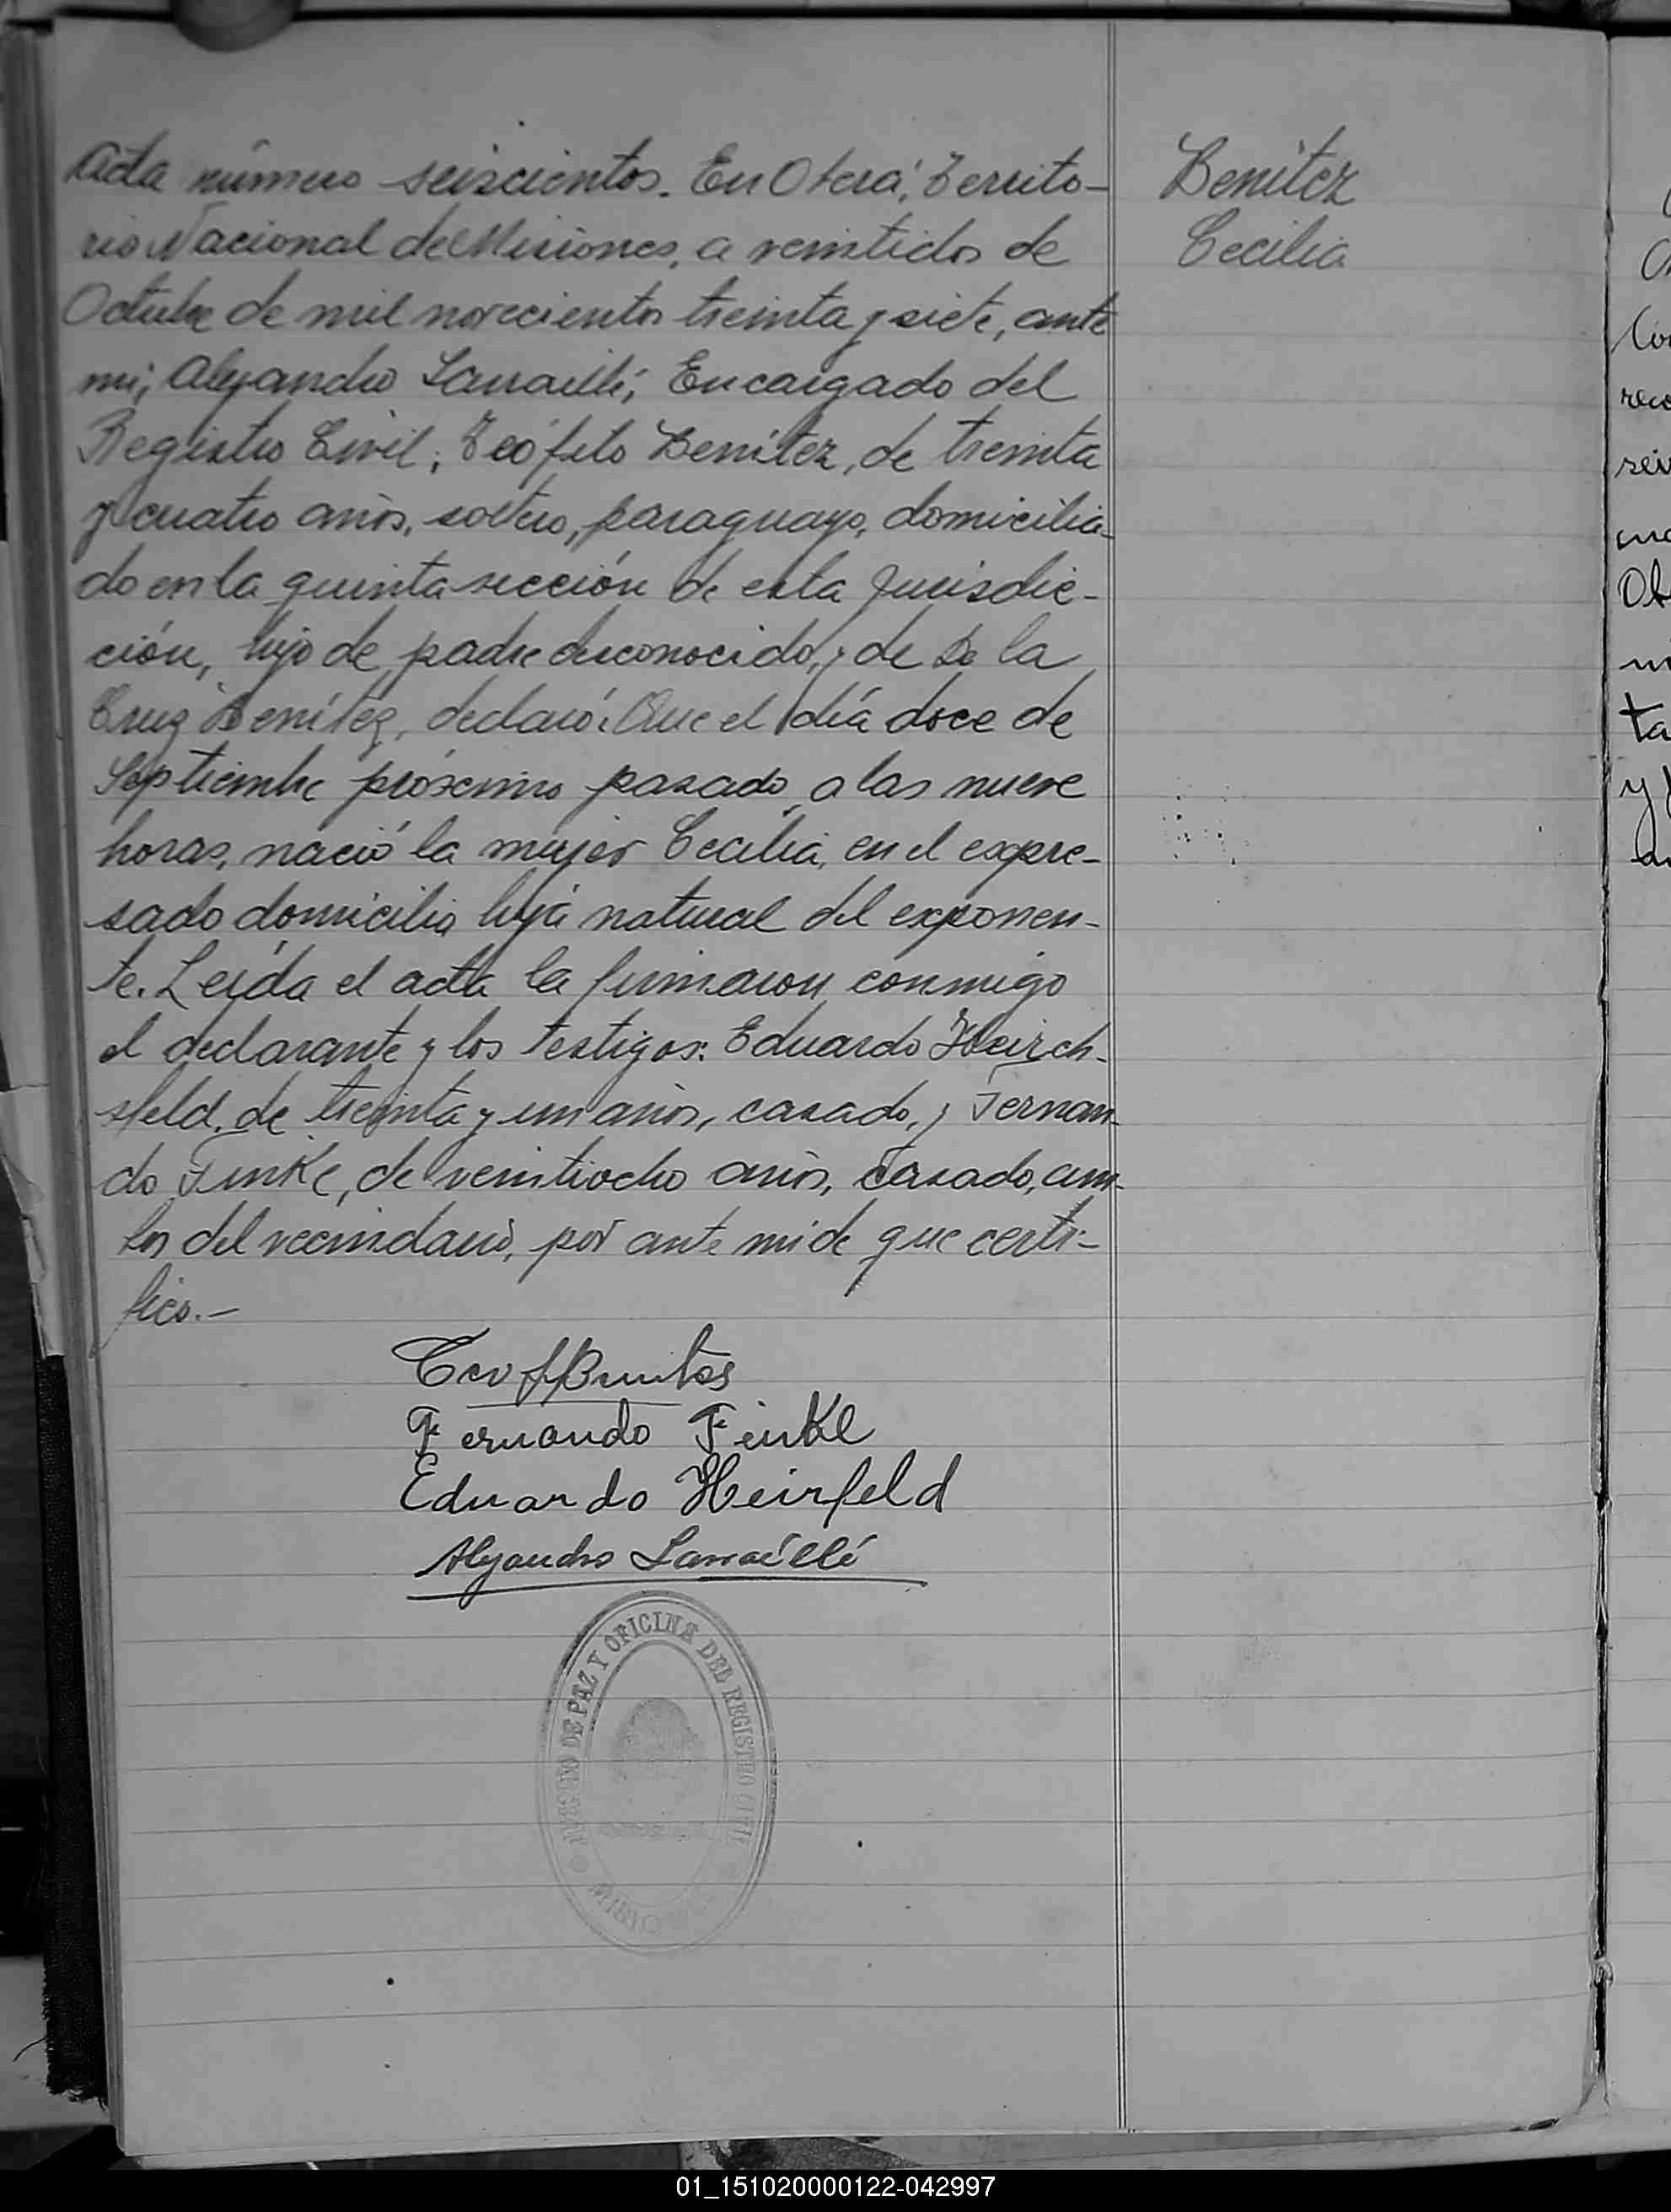 Acta número seiscientos. En Oberá, Territo-
rio Nacional de Misiones, a veintidos de
Octubre de mil novecientos treinta y siete, ante
mi, Alejandro Larraillé, Encargado del
Registro Civil, Teófilo Benítez, de treinta
y cuatro años, soltero, paraguayo, domicilia-
do en la quinta sección de esta Jurisdic-
ción, hijo de padre desconocido, y de De la
Cruz Benítez, declaró: Que el día doce de
Septiembre próximo pasado, a las nueve
horas, nació la mujer Cecilia, en el expre-
sado domicilio hija natural del exponen-
te. Leída el acta la firmaron conmigo
el declarante y los testigos: Eduardo Heirch-
sfeld, de treinta y un años, casado, y Fernan-
do Finke, de veintiocho años, casado, am-
bos del vecindario, por ante mi de que certi-
fico.-
Benítez
Cecilia
Teof Benites
Fernando Finke
Eduardo Heirfeld
Alejandro Larraillé
JUZGADO DE PAZ Y OFICINA DEL REGISTRO CIVIL
Ob
ta
y
01_151020000122-042997